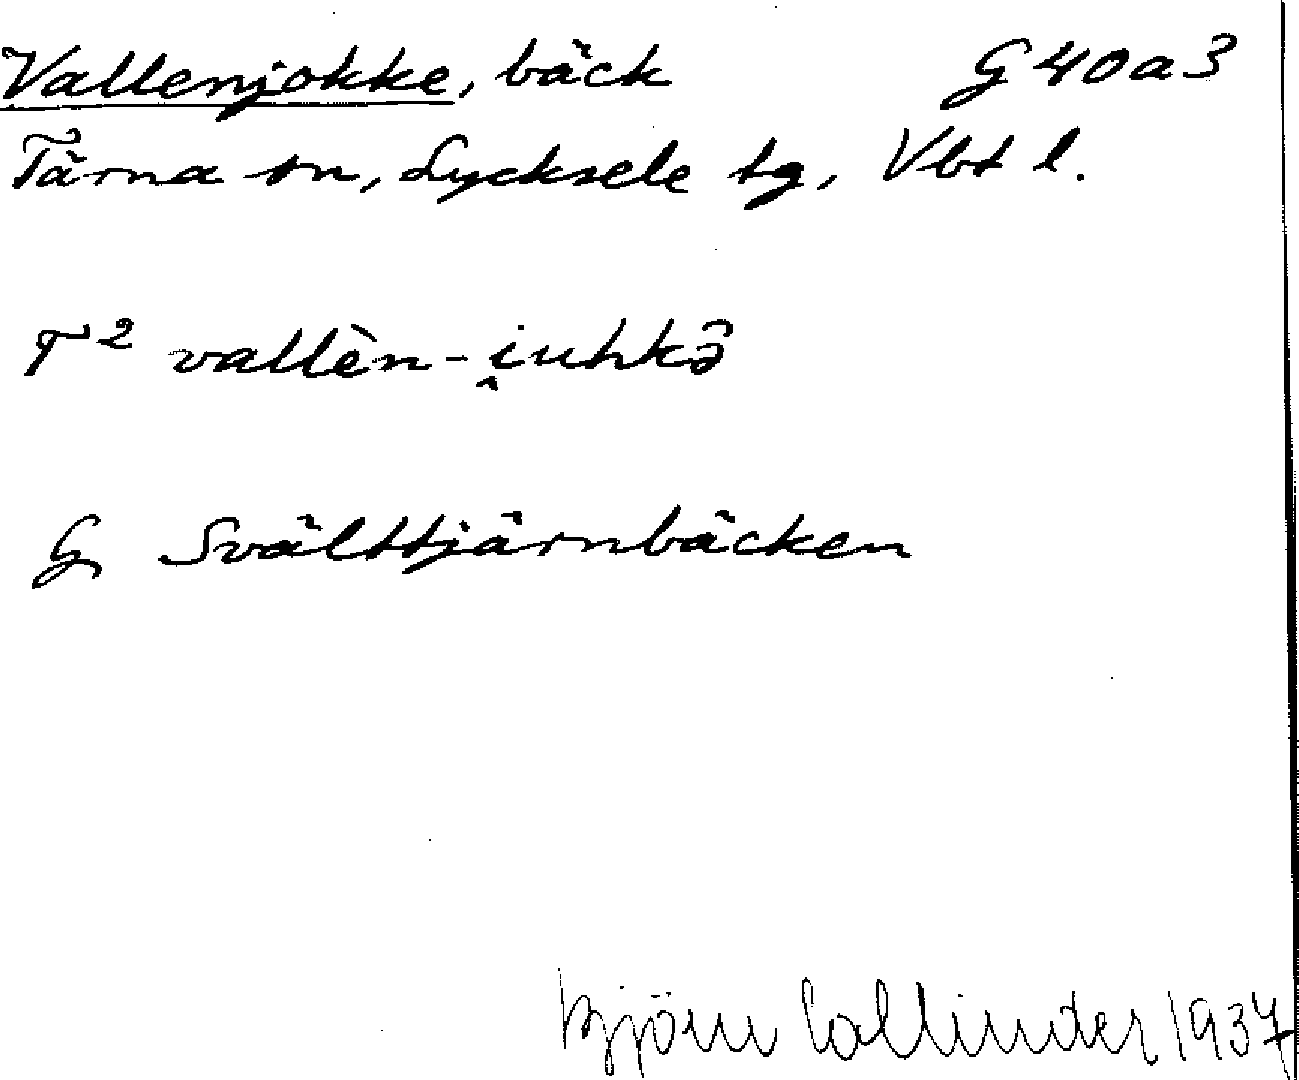 Vallenjokke, bäck G40a3
Tärna sn, Lycksele tg, Vbt l.
T² vallèn-i̭uhkə̂
G Svälttjärnbäcken
Björn Collinder 1937